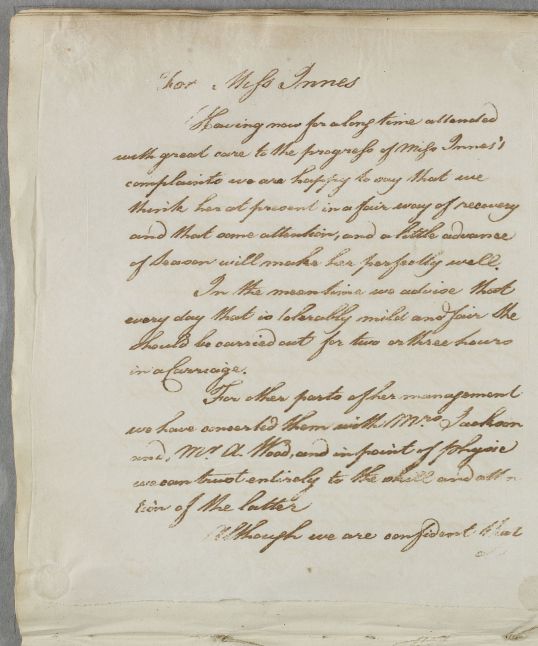 For Miss Innes
Having now for a long time attended
with great care to the progress of Miss Innes's
complaints we are happy to say that we
think her at present in a fair way of recovery
and that some attention, and a little advance
of Season will make her perfectly well.
In the meantime we advise that
every day that is tolerably mild and fair she
should be carried out for two or three hours
in a Carriage.
For other parts of her management
we have concerted them with Mrs Jackson
and, Mr A. Wood, and in point of physic
we can trust entirely to the skill and atten
tion of the latter
Although we are confident that